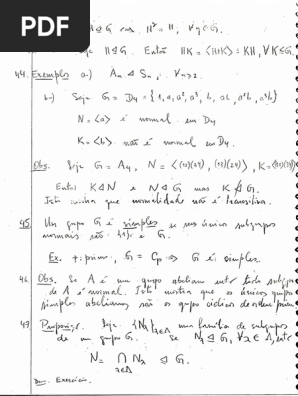 PDF
H ⊴ G ⟺ Hʸ = H, ∀ y ∈ G.
Seja H ⊴ G. Então HK = ⟨H∪K⟩ = KH, ∀ K ≤ G.
44. Exemplos a-) Aₙ ⊴ Sₙ, ∀ n≥2.
b-) Seja G = D₄ = {1, a, a², a³, b, ab, a²b, a³b}
N = <a> é normal em D₄
K = <b> não é normal em D₄.
Obs. Seja G = A₄, N = <(12)(34), (13)(24)>, K = <(12)(34)>
Então K ⊴ N e N ⊴ G mas K ⋬ G.
Isto mostra que normalidade não é transitiva.
45. Um grupo G é simples se seus únicos subgrupos
normais são {1} e G.
Ex. p primo, G = Cₚ ⇒ G é simples.
46. Obs. Se A é um grupo abeliano então todo subgrupo
de A é normal. Isto mostra que os únicos grupos
simples abelianos são os grupos cíclicos de ordem prima
47. Proposição. Seja {N_λ}_λ∈Λ uma família de subgrupos
de um grupo G. Se N_λ ⊴ G, ∀ λ ∈ Λ, então
N = ⋂ N_λ ⊴ G.
λ∈Λ
Dem. Exercício.